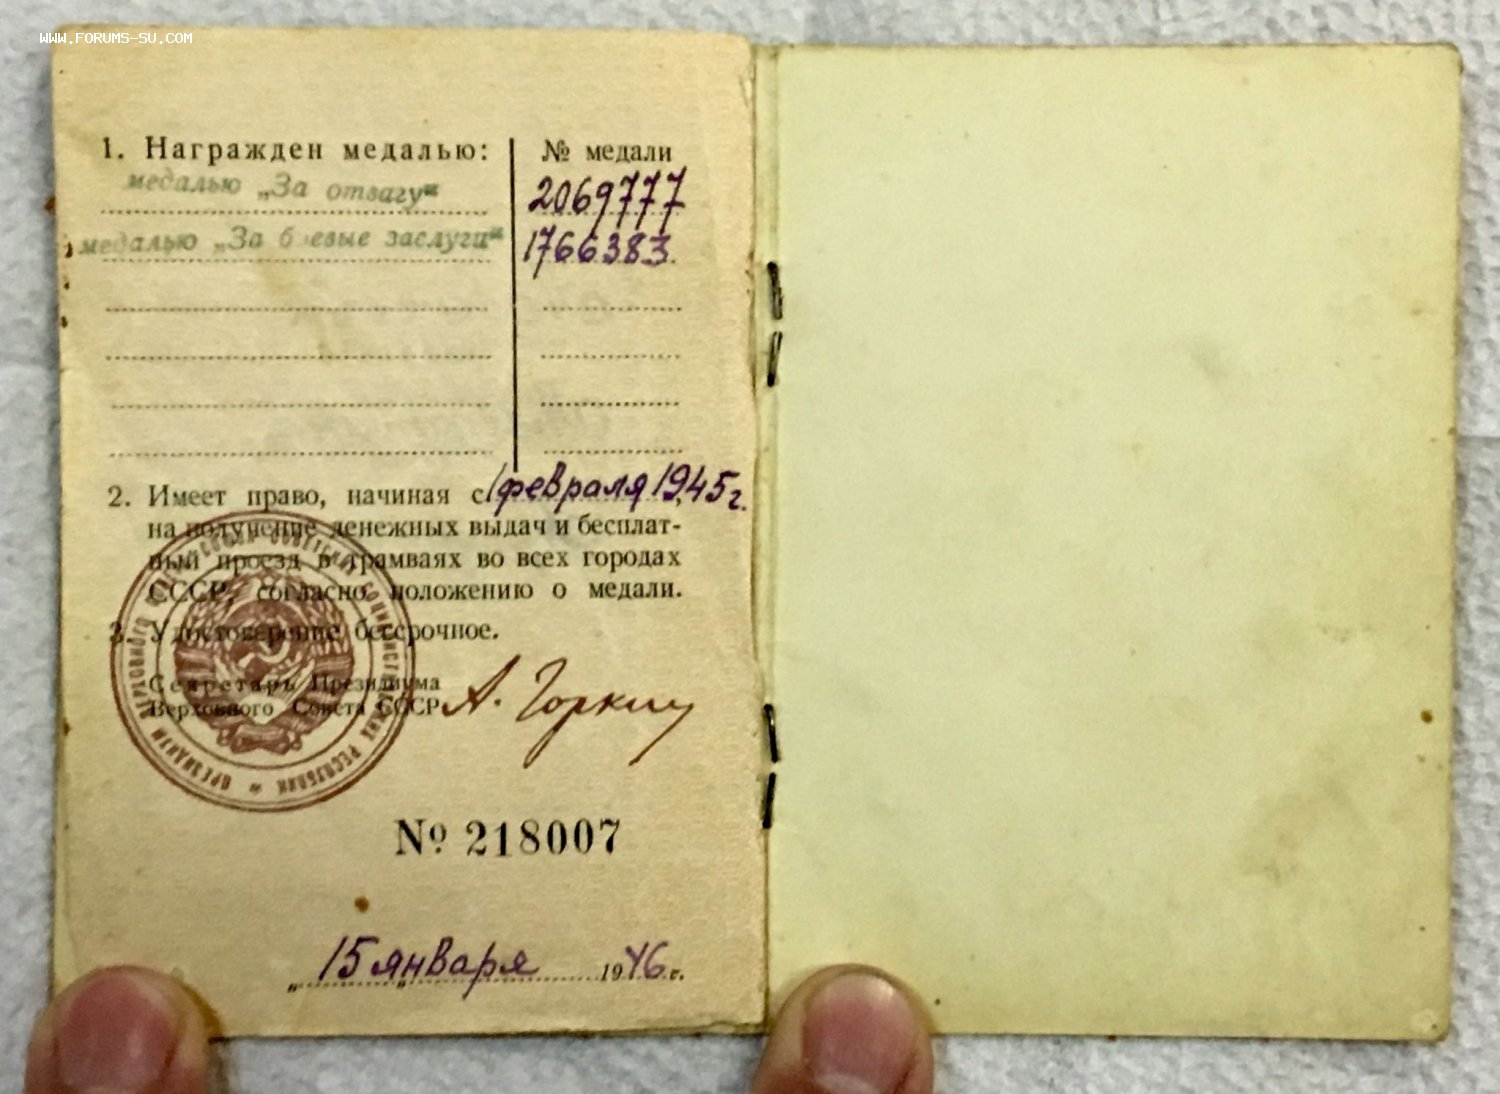 WWW.FORUMS-SU.COM
1. Награжден медалью:
№ медали
медалью „За отвагу“
2069777
медалью „За боевые заслуги“
1766383
2. Имеет право, начиная с 1 февраля 1945 г.,
на получение денежных выдач и бесплат-
ный проезд в трамваях во всех городах
СССР, согласно положению о медали.
3. Удостоверение бессрочное.
Секретарь Президиума
Верховного Совета СССР
А. Горкин
ПРЕЗИДИУМ ВЕРХОВНОГО СОВЕТА СОЮЗА СОВЕТСКИХ СОЦИАЛИСТИЧЕСКИХ РЕСПУБЛИК
№ 218007
„15 января 1946 г.